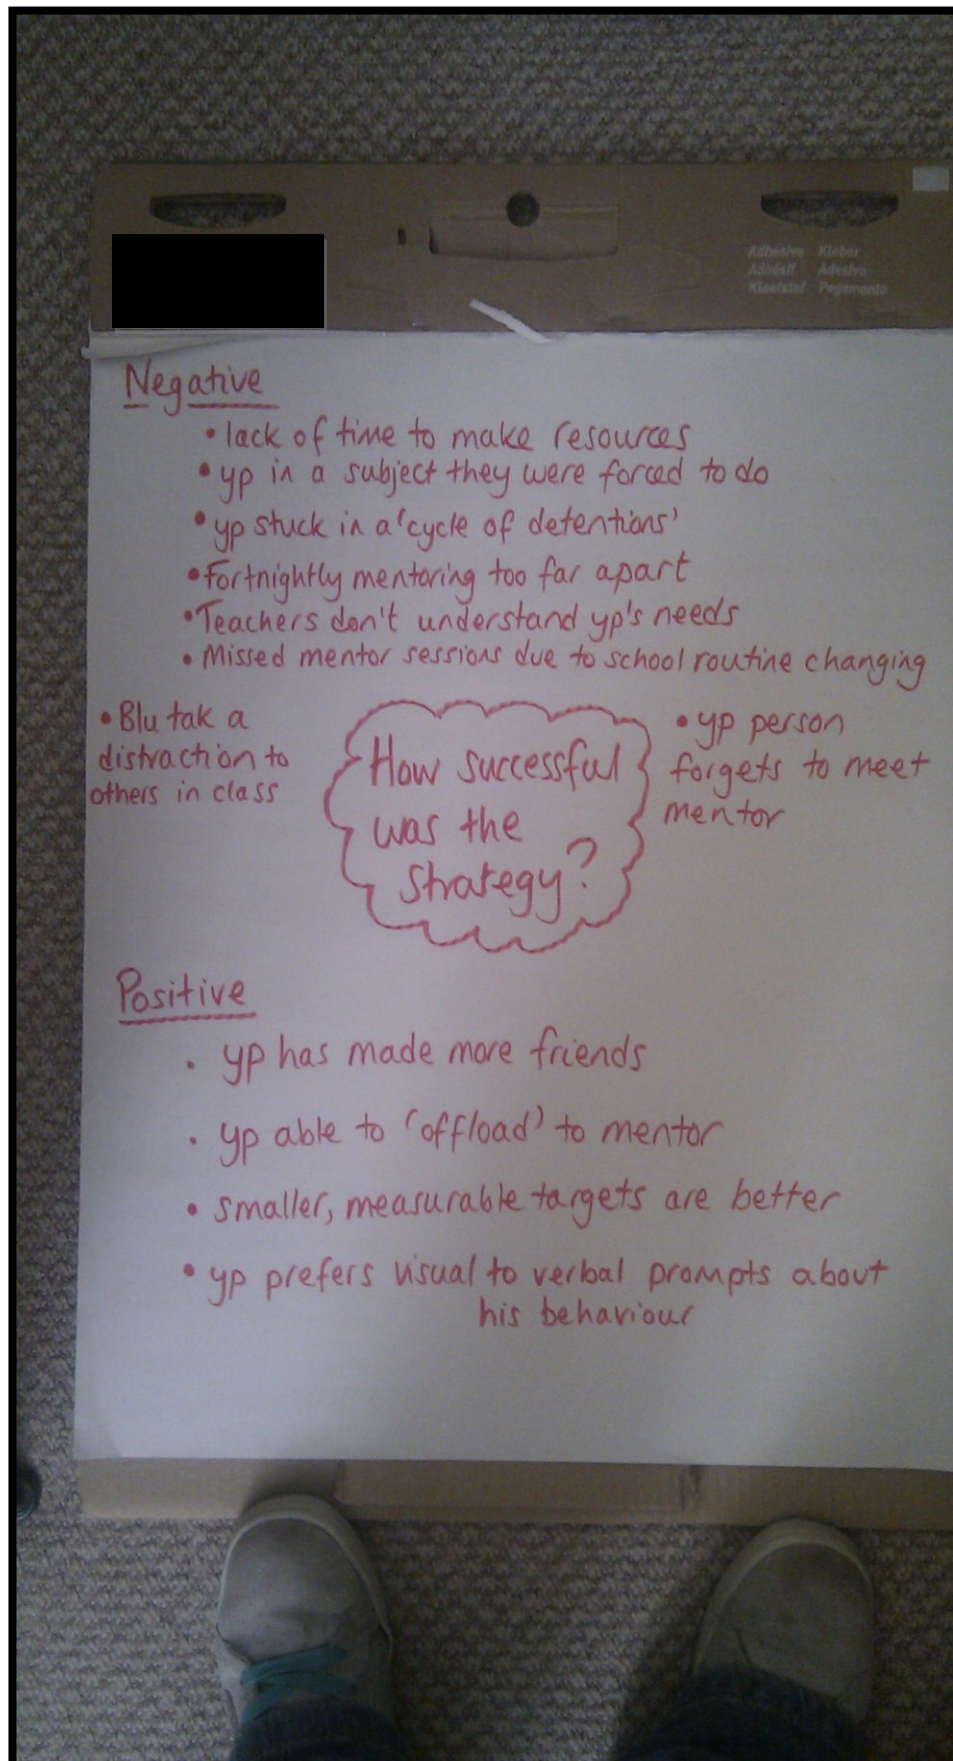 Adhesive Kleber
Adhésif Adesivo
Kleefstof Pegamento
Negative
• lack of time to make resources
• yp in a subject they were forced to do
• yp stuck in a 'cycle of detentions'
• Fortnightly mentoring too far apart
• Teachers don't understand yp's needs
• Missed mentor sessions due to school routine changing
• Blu tak a
distraction to
others in class
How successful
was the
strategy?
• yp person
forgets to meet
mentor
Positive
• yp has made more friends
• yp able to 'offload' to mentor
• smaller, measurable targets are better
• yp prefers visual to verbal prompts about
his behaviour